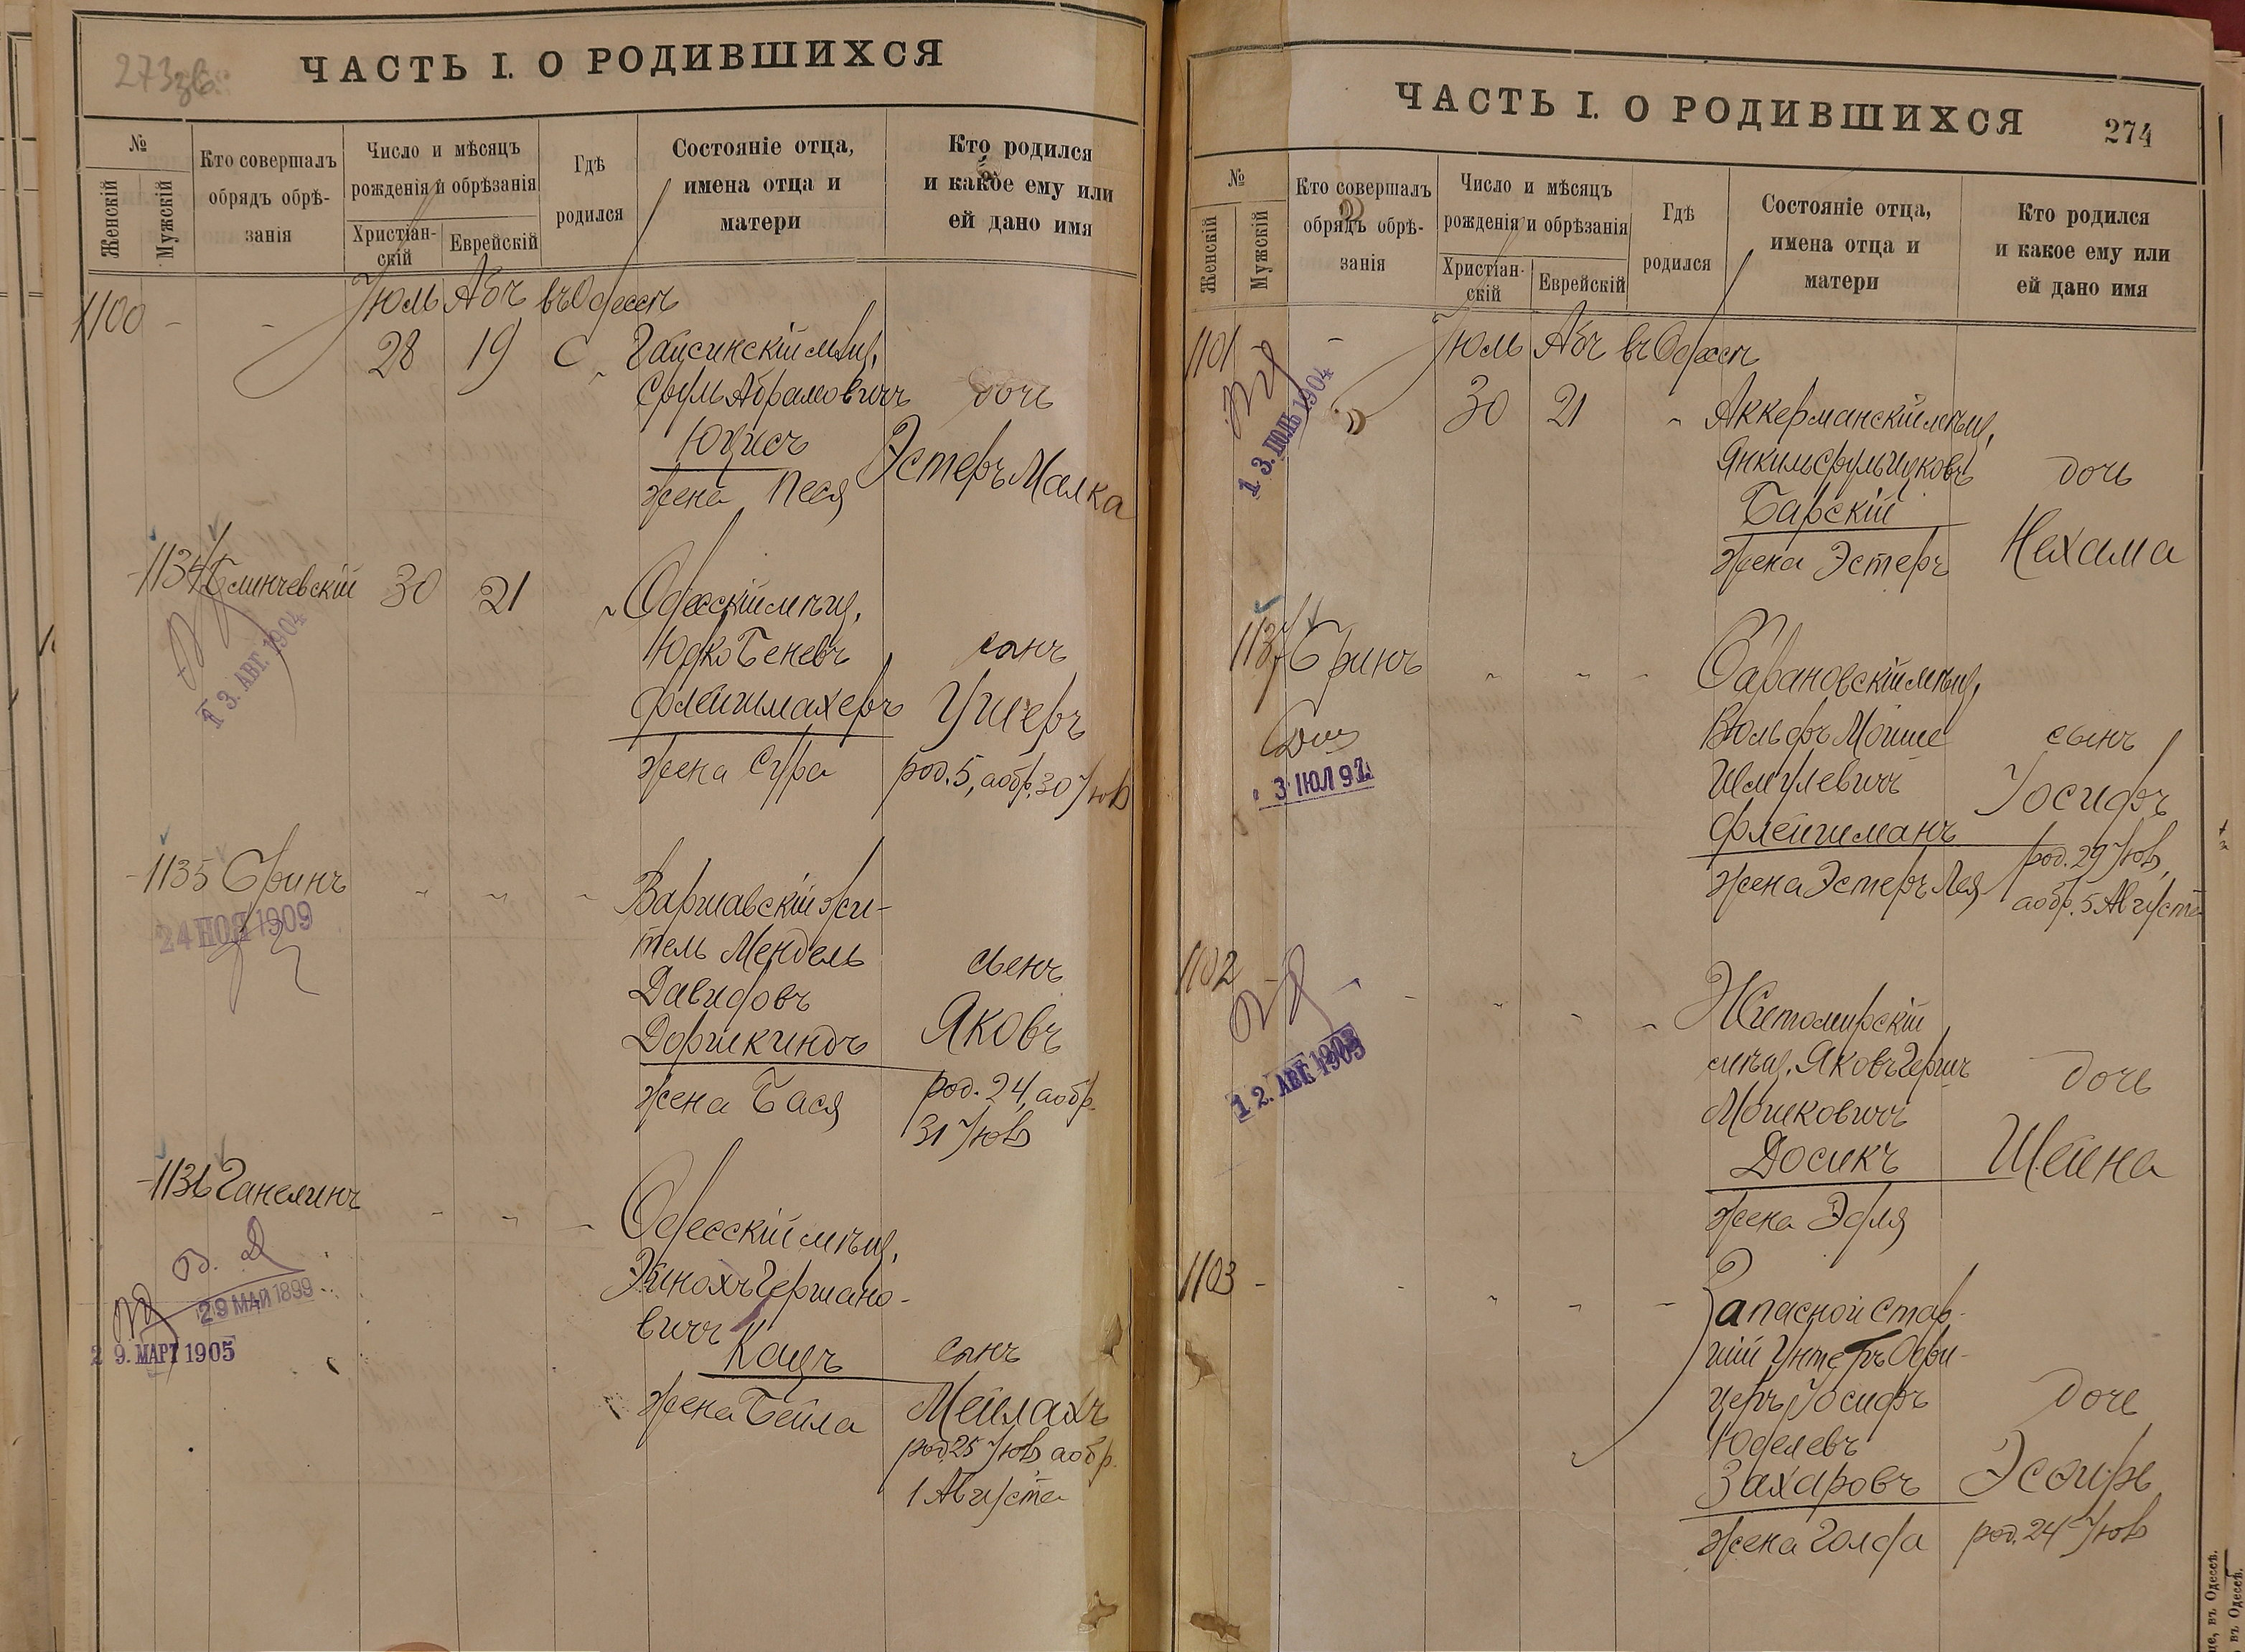 273 об.
ЧАСТЬ I. О РОДИВШИХСЯ
№
Женскій
Мужскій
Кто совершалъ обрядъ обрѣ-занія
Число и мѣсяцъ рожденія и обрѣзанія
Христіан-скій
Еврейскій
Гдѣ родился
Состояніе отца, имена отца и матери
Кто родился и какое ему или ей дано имя
Іюль Абъ въ Одессѣ
1100 - - 28 19 Гайсинскій мѣщ.
Сруль Абрамовичъ дочь
Юцисъ
жена Песя Эстеръ Малка
1134 Блинчевскій 30 21 " Одесскій мѣщ.
Юдко Беневъ сынъ
Флейшмахеръ Ушеръ
жена Сура род. 5, а обр. 30 Іюля
13. АВГ. 1904
1135 Гринъ " " " Варшавскій жи-
тель Мендель сынъ
Давидовъ
Доржкиндъ Яковъ
жена Бася род. 24, а обр.
31 Іюля
24 НОЯ 1909
1136 Ганелинъ " " " Одесскій мѣщ.
Эйнохъ Гершано-
вичъ
Кацъ сынъ
жена Бейла Мейлахъ
род. 25 Іюля, а обр.
1 Августа
29 МАЙ 1899
29. МАРТ 1905
ЧАСТЬ I. О РОДИВШИХСЯ
274
№
Женскій
Мужскій
Кто совершалъ обрядъ обрѣ-занія
Число и мѣсяцъ рожденія и обрѣзанія
Христіан-скій
Еврейскій
Гдѣ родился
Состояніе отца, имена отца и матери
Кто родился и какое ему или ей дано имя
Іюль Абъ въ Одессѣ
1101 - - 30 21 " Аккерманскій мѣщ.
Янкиль Сруль Ицковъ дочь
Барскій
жена Эстеръ Нехама
13. ІЮЛЬ 1904
1137 Гринъ " " " Барановскій мѣщ.
Вольфъ Мойше сынъ
Шмулевичъ Іосифъ
Флейшманъ
жена Эстеръ Лея род. 29 Іюля,
а обр. 5 Августа
3 ІЮЛ 97
1102 - - " " " Житомирскій
мѣщ. Яковъ Гершъ дочь
Мошковичъ
Досикъ Шейна
жена Эдля
12. АВГ. 1903
1103 - - " " " Запасной Стар-
шій Унтеръ Офи-
церъ Іосифъ дочь
Юделевъ
Захаровъ Эсфирь
жена Голда род. 24 Іюля
въ Одессѣ.
въ Одессѣ.